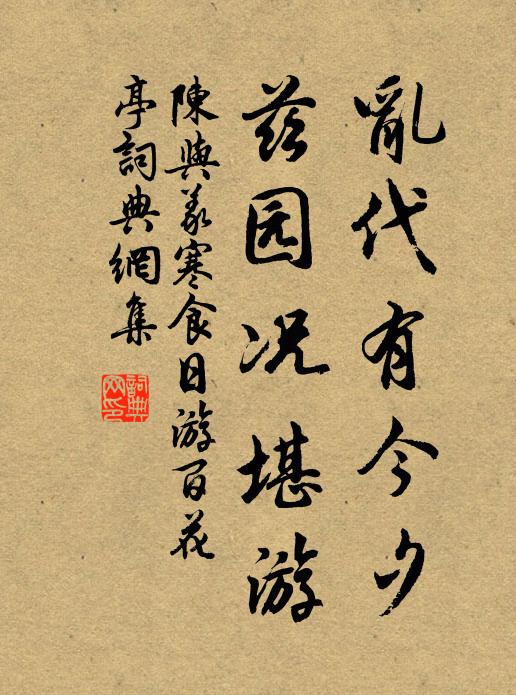 亂代有今夕
兹园况堪游
陳與義寒食日游百花
亭詞典網集
詞典
网印